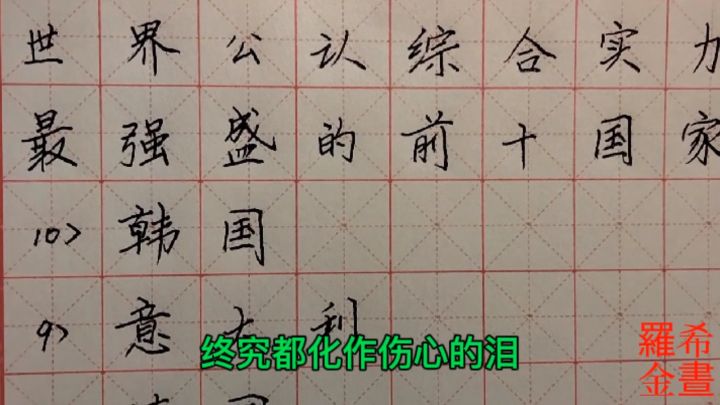 世界公认综合实力
最强盛的前十国家
10>韩国
9>意大利
终究都化作伤心的泪
羅希
金畫